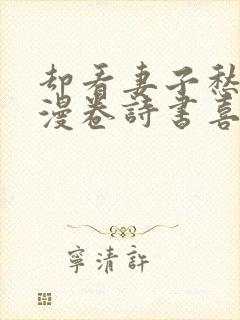 却看妻子愁
漫卷詩書喜
寧清許